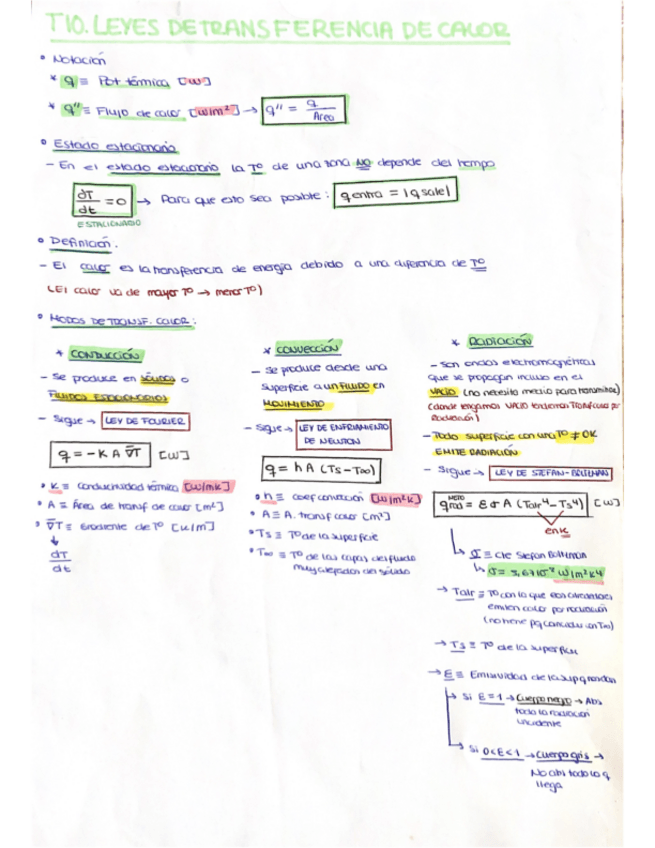 T10. LEYES DE TRANSFERENCIA DE CALOR
• Notación
* q ≡ Pot térmica [W]
* q'' ≡ Flujo de calor [W/m²] → q'' = q / Area
• Estado estacionario
- En el estado estacionario la Tº de una zona NO depende del tiempo
dT/dt = 0 → Para que esto sea posible: q entra = |q sale|
ESTACIONARIO
• Definición.
- El calor es la transferencia de energía debido a una diferencia de Tº
(El calor va de mayor Tº → menor Tº)
• MODOS DE TRANSF. CALOR:
* CONDUCCIÓN
- Se produce en sólidos o
FLUIDOS ESTACIONARIOS
- Sigue → LEY DE FOURIER
q = - K A ∇T [W]
• K ≡ Conductividad térmica [W/mK]
• A ≡ Área de transf de calor [m²]
• ∇T ≡ Gradiente de Tº [K/m]
↓
dT
dt
* CONVECCIÓN
- Se produce desde una
superficie a un FLUIDO en
MOVIMIENTO
- Sigue → LEY DE ENFRIAMIENTO
DE NEWTON
q = h A (Ts - T∞)
• h ≡ coef convección [W/m²K]
• A ≡ A. transf calor [m²]
• Ts ≡ Tº de la superficie
• T∞ ≡ Tº de las capas del fluido
muy alejadas del sólido
* RADIACIÓN
- Son ondas electromagnéticas
que se propagan incluso en el
VACÍO (no necesita medio para transmitirse)
(donde tengamos VACÍO tendremos Transf calor por
Radiación)
- Toda superficie con una Tº ≠ 0K
EMITE RADIACIÓN
- Sigue → LEY DE STEFAN-BOLTZMAN
q rad NETO = ε σ A (Talr⁴ - Ts⁴) [W]
en K
↳ σ ≡ cte Stefan Boltzman
↳ σ = 5,67·10⁻⁸ W/m²K4
→ Talr ≡ Tº con la que los alrededores
emiten calor por radiación
(no tiene pq coincidir con T∞)
→ Ts ≡ Tº de la superficie
→ E ≡ Emisividad de la sup
→ Si E = 1 → Cuerpo negro → Abs
toda la radiación
incidente
↳ Si 0<E<1 → Cuerpo gris →
No abs todo lo q
llega